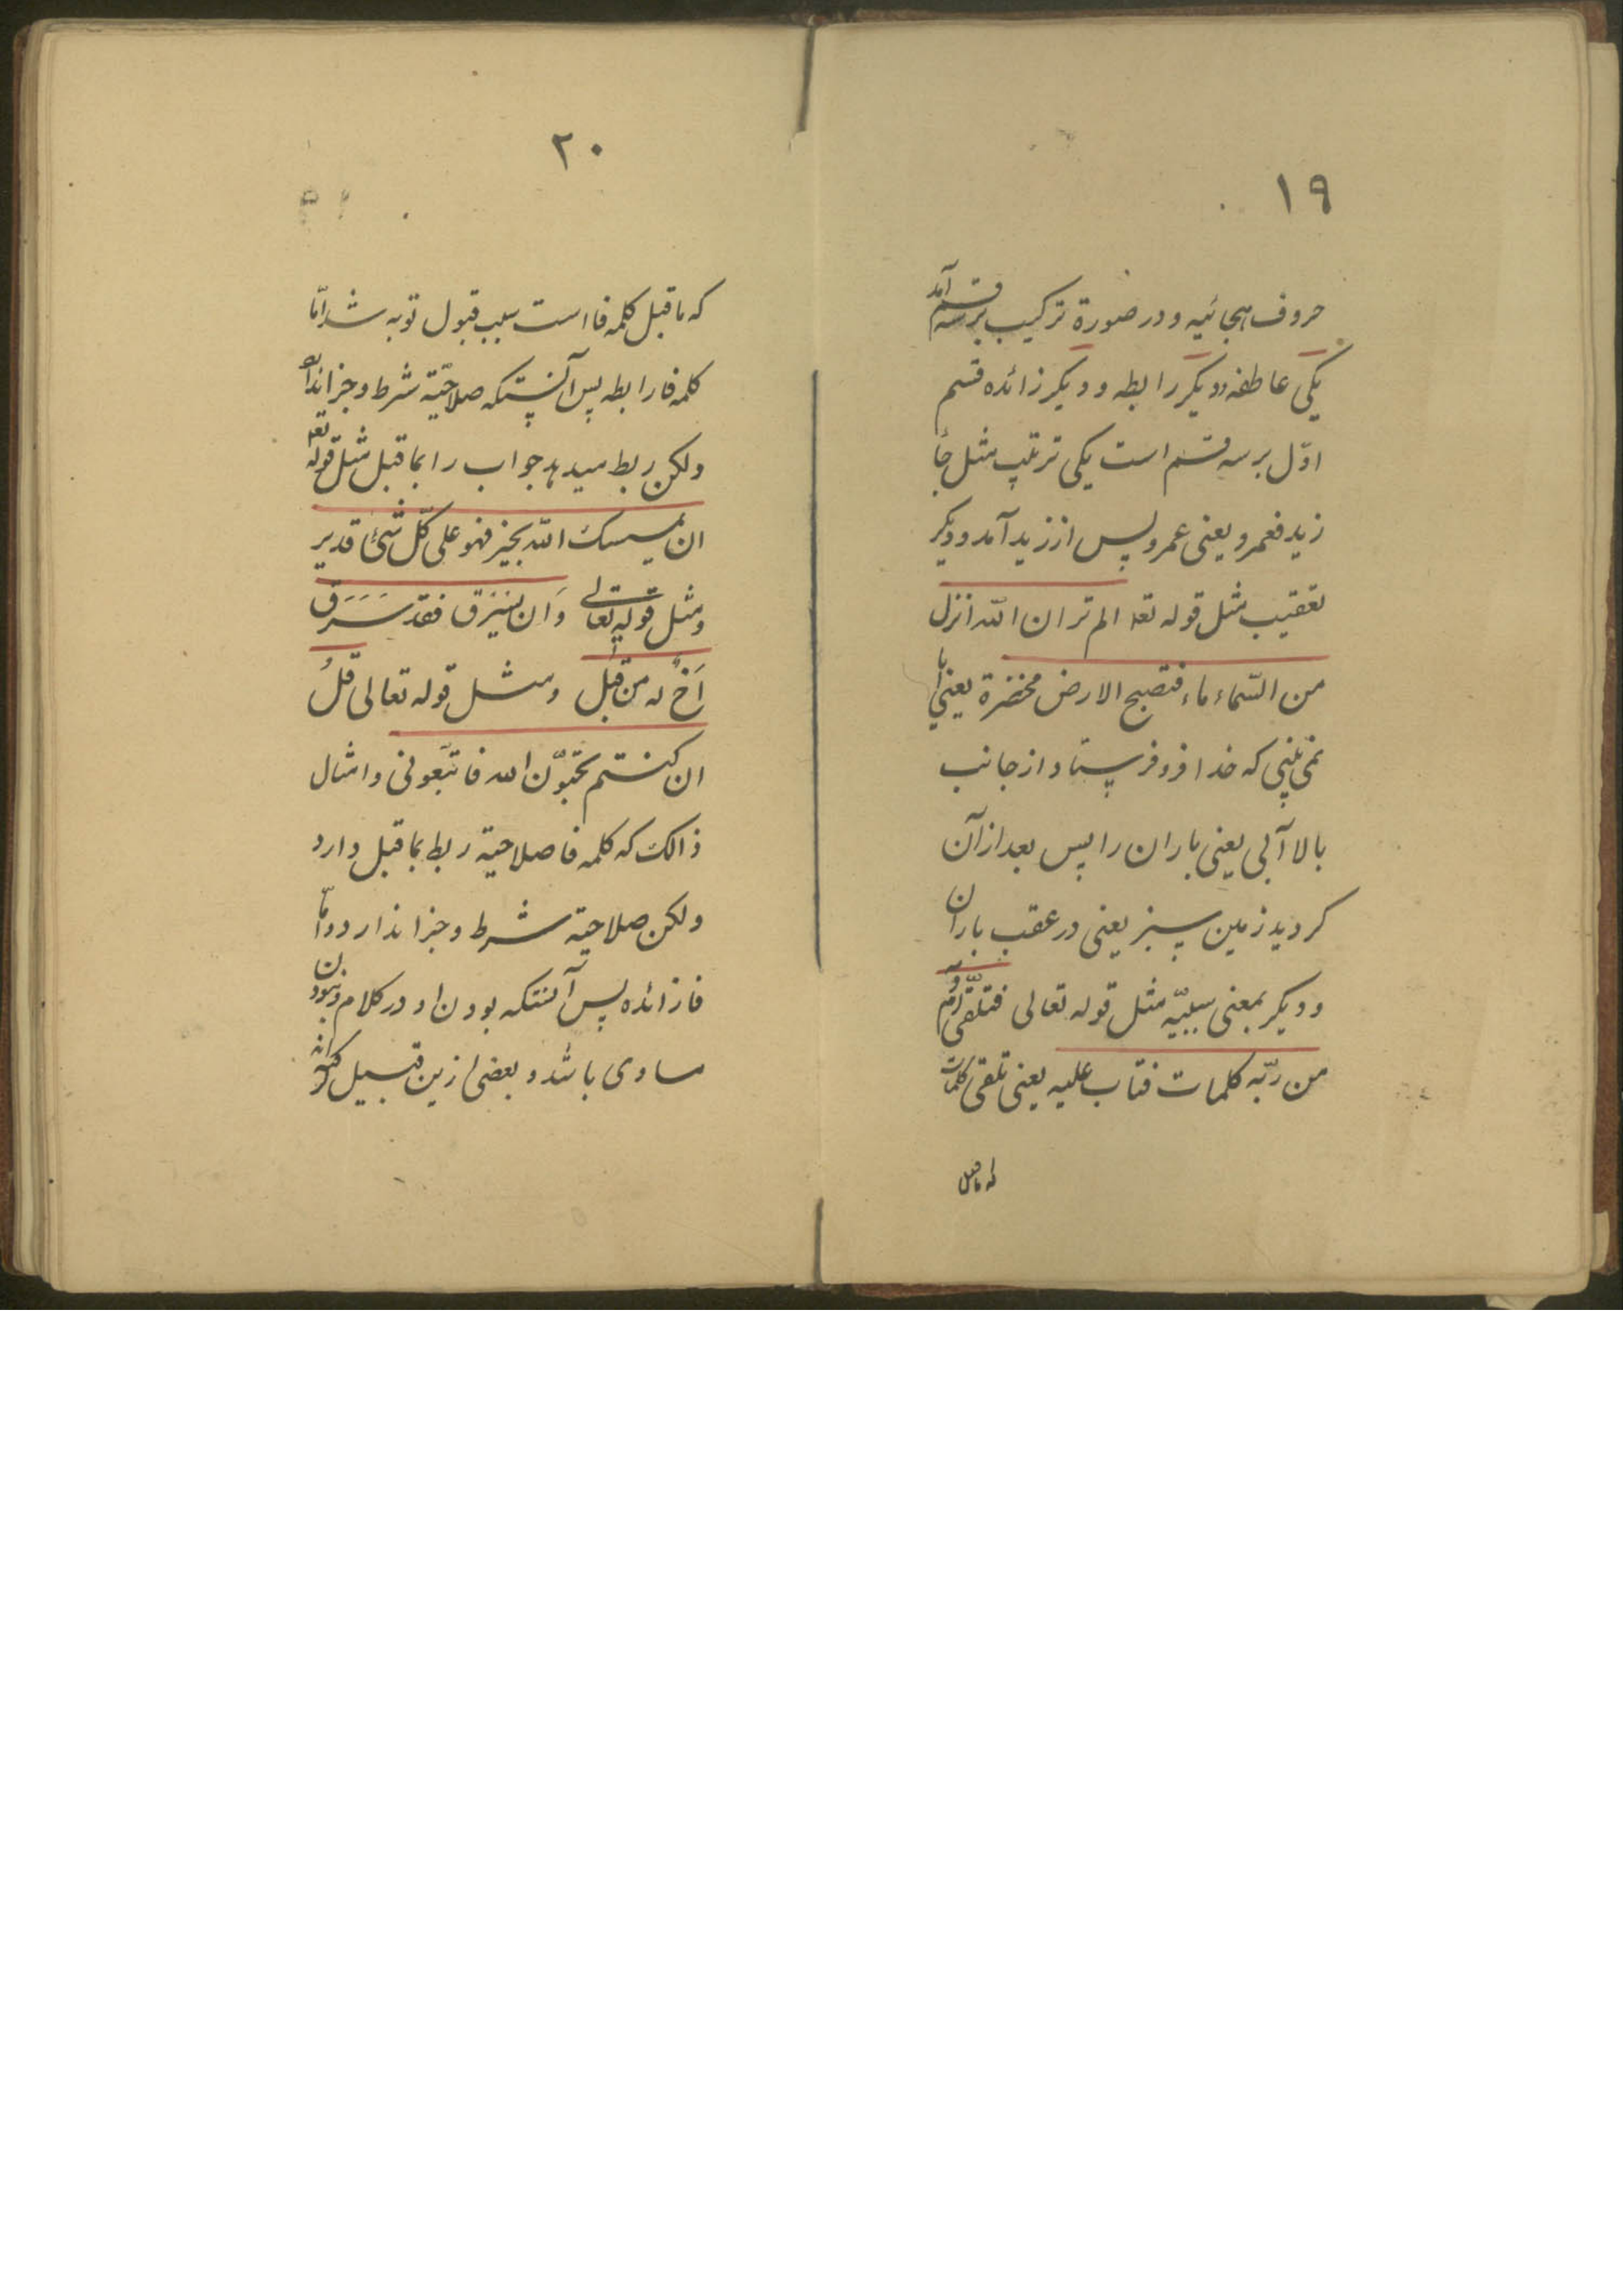 ١٩
حروف هجائیه و در صورة ترکیب بر سه قسم آمد
یکی عاطفه و دیکر رابطه و دیکر زائده قسم
اوّل بر سه قسم است یکی ترتیب مثل جاء
زید فعمرو یعنی عمرو پس از زید آمد و دیکر
تعقیب مثل قوله تعه الم تر ان اللّه انزل
من السّماء ماء فتصبح الارض مخضرة یعنی ایا
نمی بینی که خدا فرو فرستاد از جانب
بالا آبی یعنی باران را پس بعد از آن
کردید زمین سبز یعنی در عقب باران
و دیکر بمعنی سببیّه مثل قوله تعالی فتلقّی آدم
من ربّه کلمات فتاب علیه یعنی تلقی کلمات
که ماقبل
٢٠
که ماقبل کلمه فا است سبب قبول توبه شد امّا
کلمه فا رابطه پس آنستکه صلاحیّة شرط و جزا ندارد
ولکن ربط میدهد جواب را بماقبل مثل قوله تعه
ان یمسسک اللّه بخیر فهو علی کلّ شئ قدیر
و مثل قوله تعالی وَ ان یَسْرَق فقد سَرَقَ
اَخٌ له من قَبلُ و مثل قوله تعالی قُلْ
ان کنتم تحبّون اللّه فاتبّعونی و امثال
ذالک که کلمه فا صلاحیة ربط بماقبل دارد
ولکن صلاحیة شرط و جزا ندارد و امّا
فا زائده پس آنستکه بودن او در کلام و نبودن
مساوی باشد و بعضی ازین قبیل کفته‌اند